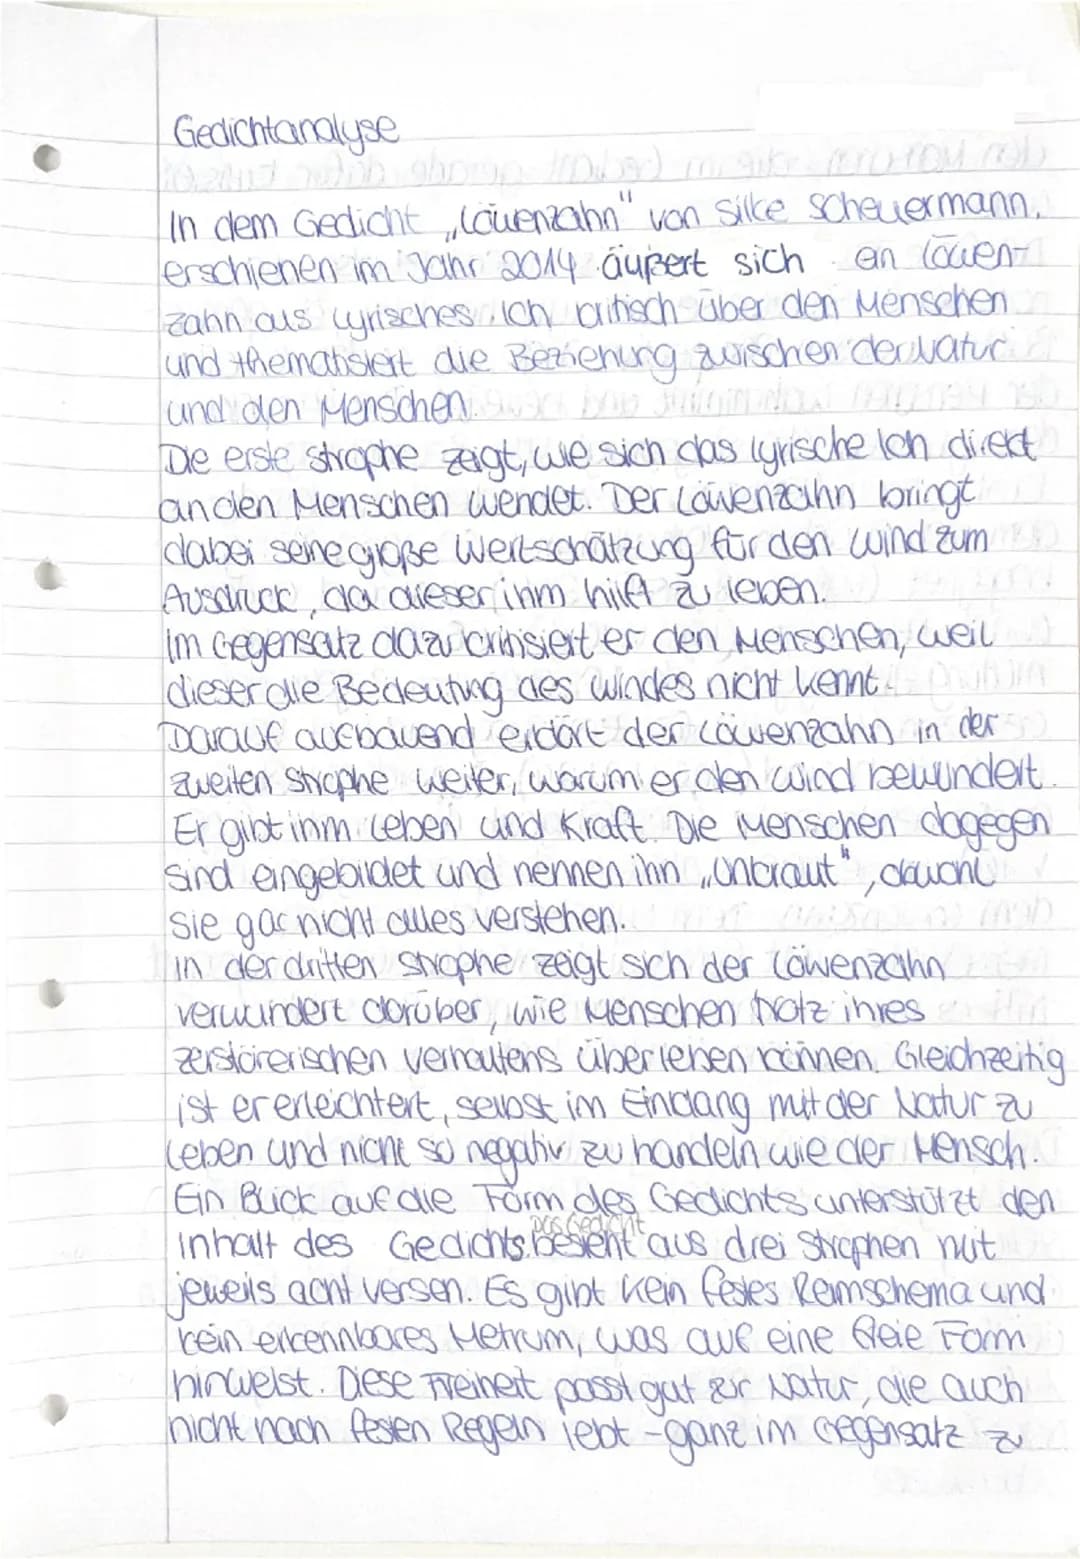 Gedichtanalyse
In dem Gedicht „Löwenzahn" von Silke Scheuermann,
erschienen im Jahr 2014 äußert sich ein Löwen-
zahn aus lyrisches Ich kritisch über den Menschen
und thematisiert die Beziehung zwischen der Natur
und den Menschen.
Die erste Strophe zeigt, wie sich das lyrische Ich direkt
an den Menschen wendet. Der Löwenzahn bringt
dabei seine große Wertschätzung für den Wind zum
Ausdruck, da dieser ihm hilft zu leben.
Im Gegensatz dazu kritisiert er den Menschen, weil
dieser die Bedeutung des Windes nicht kennt.
Darauf aufbauend erklärt der Löwenzahn in der
zweiten Strophe weiter, warum er den Wind bewundert.
Er gibt ihm Leben und Kraft. Die Menschen dagegen
sind eingebildet und nennen ihn „Unkraut", obwohl
sie gar nicht alles verstehen.
In der dritten Strophe zeigt sich der Löwenzahn
verwundert darüber, wie Menschen trotz ihres
zerstörerischen Verhaltens überleben können. Gleichzeitig
ist er erleichtert, selbst im Einklang mit der Natur zu
leben und nicht so negativ zu handeln wie der Mensch.
Ein Blick auf die Form des Gedichts unterstützt den
Das Gedicht
Inhalt des Gedichts. besteht aus drei Strophen mit
jeweils acht Versen. Es gibt kein festes Reimschema und
kein erkennbares Metrum, was auf eine freie Form
hinweist. Diese Freiheit passt gut zur Natur, die auch
nicht nach festen Regeln lebt - ganz im Gegensatz zu